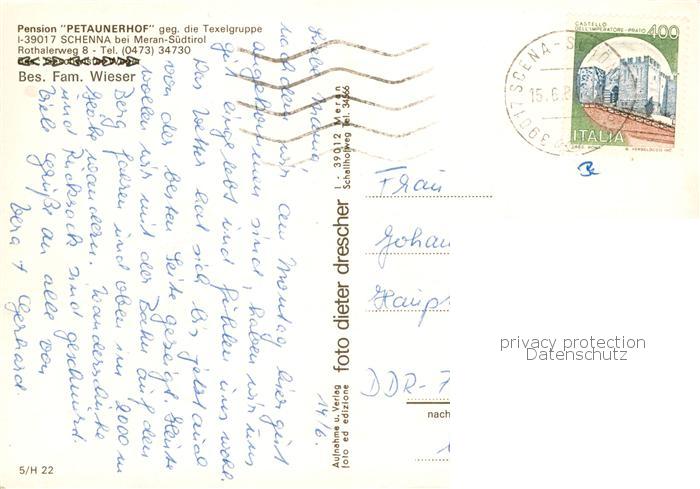 Pension "PETAUNERHOF" geg. die Texelgruppe
I-39017 SCHENNA bei Meran-Südtirol
Rothalerweg 8 - Tel. (0473) 34730
Bes. Fam. Wieser
14/6.
nachdem wir am Montag hier gut
angekommen sind, haben wir uns
gut eingelebt und fühlen uns wohl.
Das Wetter hat sich bis jetzt auch
von der besten Seite gezeigt. Heute
wollen wir mit der Bahn auf den
Berg fahren und oben in 2000 m
Höhe wandern. Wanderschuhe
und Rucksack sind geschnürt.
Viele Grüße an alle von
Vera + Gerhard
5/H 22
Aufnahme u. Verlag
foto ed edizione
foto dieter drescher
I 39012 Meran
Schallhofweg Tel. 34566
39017 SCENA-
15.6.8
CASTELLO
DELL'IMPERATORE-PRATO
400
ITALIA
Frau
Johan
Haup
DDR-7
nach
privacy protection
Datenschutz